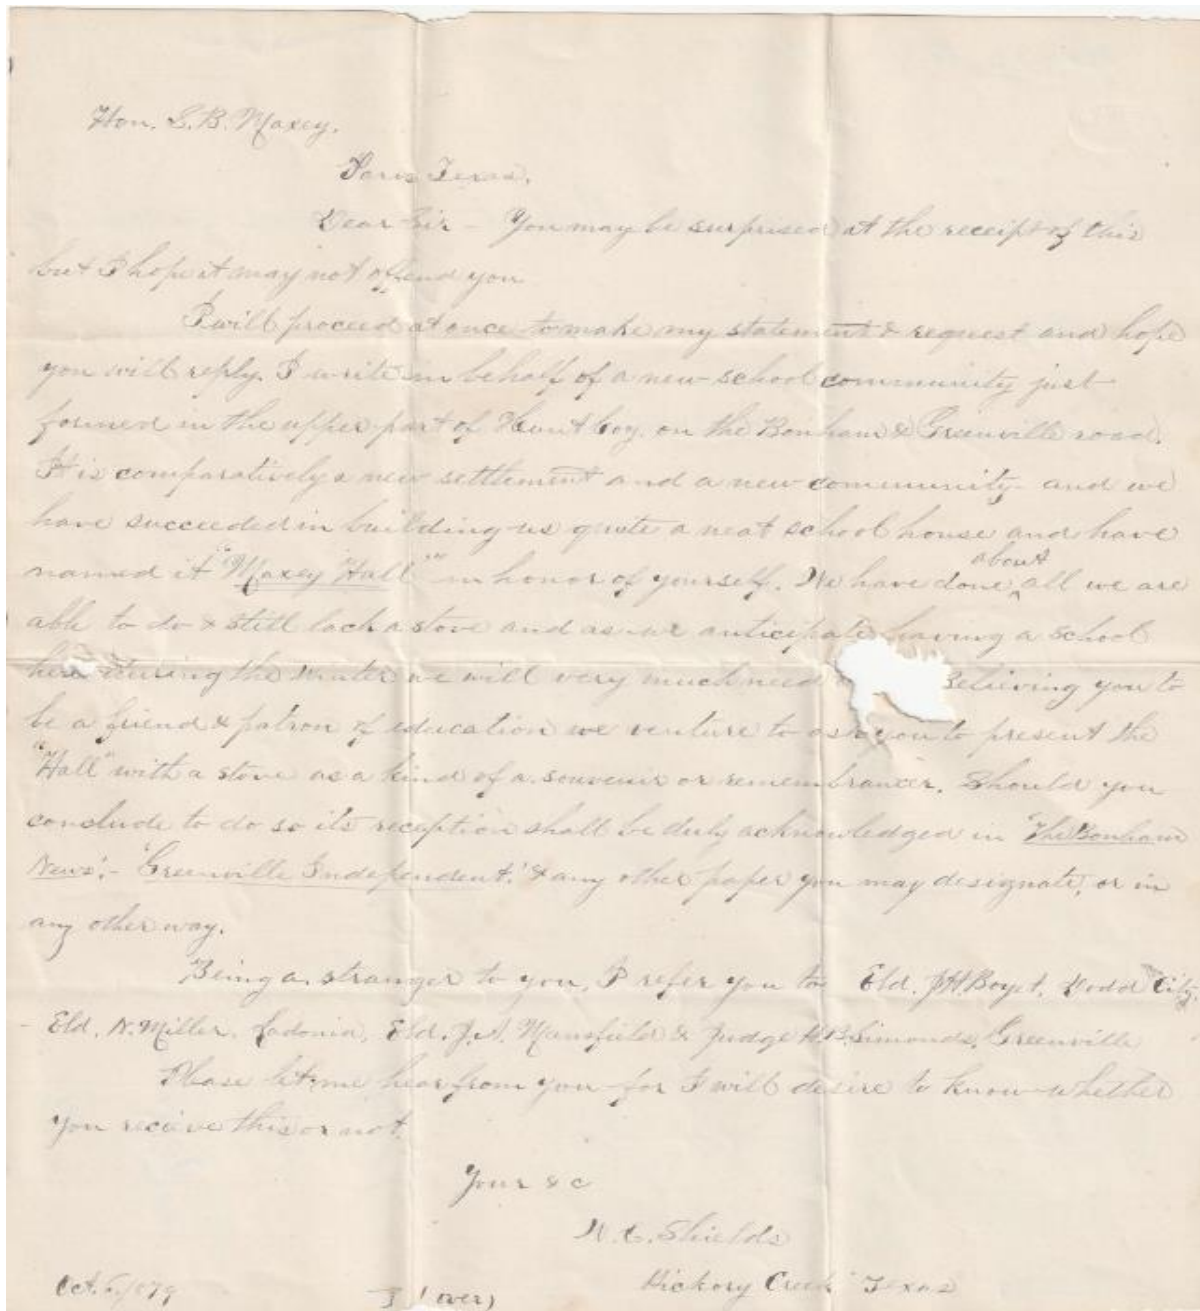 Hon. S. B. Maxey.
Paris Texas.
Dear Sir - You may be surprised at the receipt of this
but I hope it may not offend you
I will proceed at once to make my statement & request and hope
you will reply. I write in behalf of a new school community just
formed in the upper part of Hunt Coy. on the Bonham & Greenville road.
It is comparatively a new settlement and a new community and we
have succeeded in building us quite a neat school house and have
named it "Maxey Hall" in honor of yourself. We have done about all we are
able to do & still lack a stove and as we anticipate having a school
here during the winter we will very much need Believing you to
be a friend & patron of education we venture to ask you to present the
"Hall" with a stove as a kind of a souvenir or remembrancer. Should you
conclude to do so its reception shall be duly acknowledged in "The Bonham
News". - "Greenville Independent." & any other paper you may designate, or in
any other way.
Being a stranger to you, I refer you to Eld. J. H. Boyet, Dodd City,
Eld. N. Miller, Ladonia, Eld. J. A. Mansfield & Judge H. B. Simonds, Greenville
Please let me hear from you for I will desire to know whether
you receive this or not.
Your &c
W. C. Shields
Hickory Creek Texas
Oct. 6/079 (over)